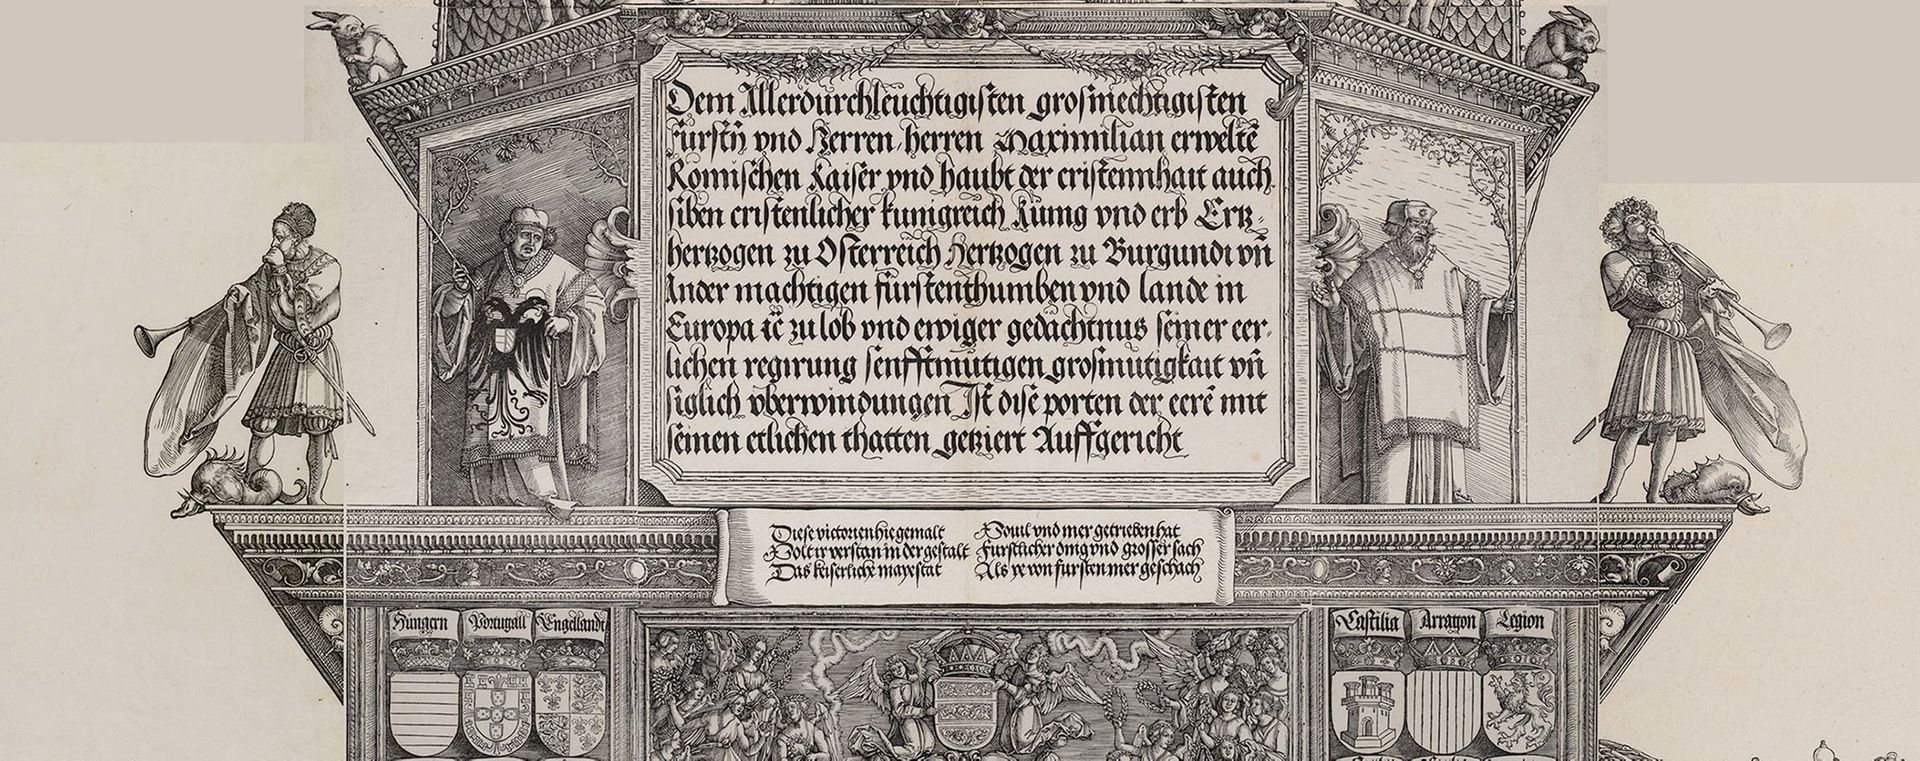 Dem Allerdurchleuchtigisten grosmechtigisten
fursth̄ vnd Herren herren Maximilian erweltē
Romischen Kaiser vnd haubt der cristennhait auch
siben cristenlicher kunigreich Kunig vnd erb Ertz-
hertzogen zu Osterreich Hertzogen zu Burgundi vn̄
Ander machtigen furstenthumben vnd lande in
Europa zc̄ zu lob vnd ewiger gedachtnus seiner eer-
lichen regirung senfftmutigen grosmutigkait vn̄
siglich vberwindungen Ist dise porten der eerē mit
seinen etlichen thatten getziert Auffgericht
Diese victorien hie gemalt
Wolt ir verstan in der gestalt
Das keiserliche mayestat
Vouil vnd mer getrieben hat
Furstlicher ding vnd grosser sach
Als ye von fursten mer geschach
Hungern Portugall Engellandt
Castilia Arragon Legion